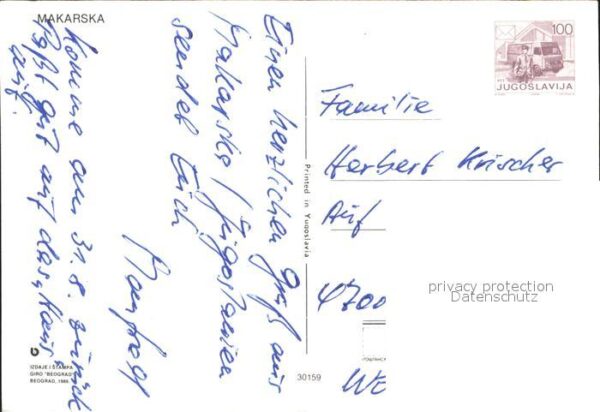 MAKARSKA
Einen herzlichen Gruß aus
Makarska / Jugoslawien
sendet Euch
Manfred
Komme am 31.8. zurück
Paßt gut auf das Haus
auf.
100
JUGOSLAVIJA
Familie
Herbert Krischer
Auf
4700
WE
privacy protection
Datenschutz
Printed in Yugoslavia
30159
IZDAJE I ŠTAMPA
GIRO "BEOGRAD"
BEOGRAD, 1986